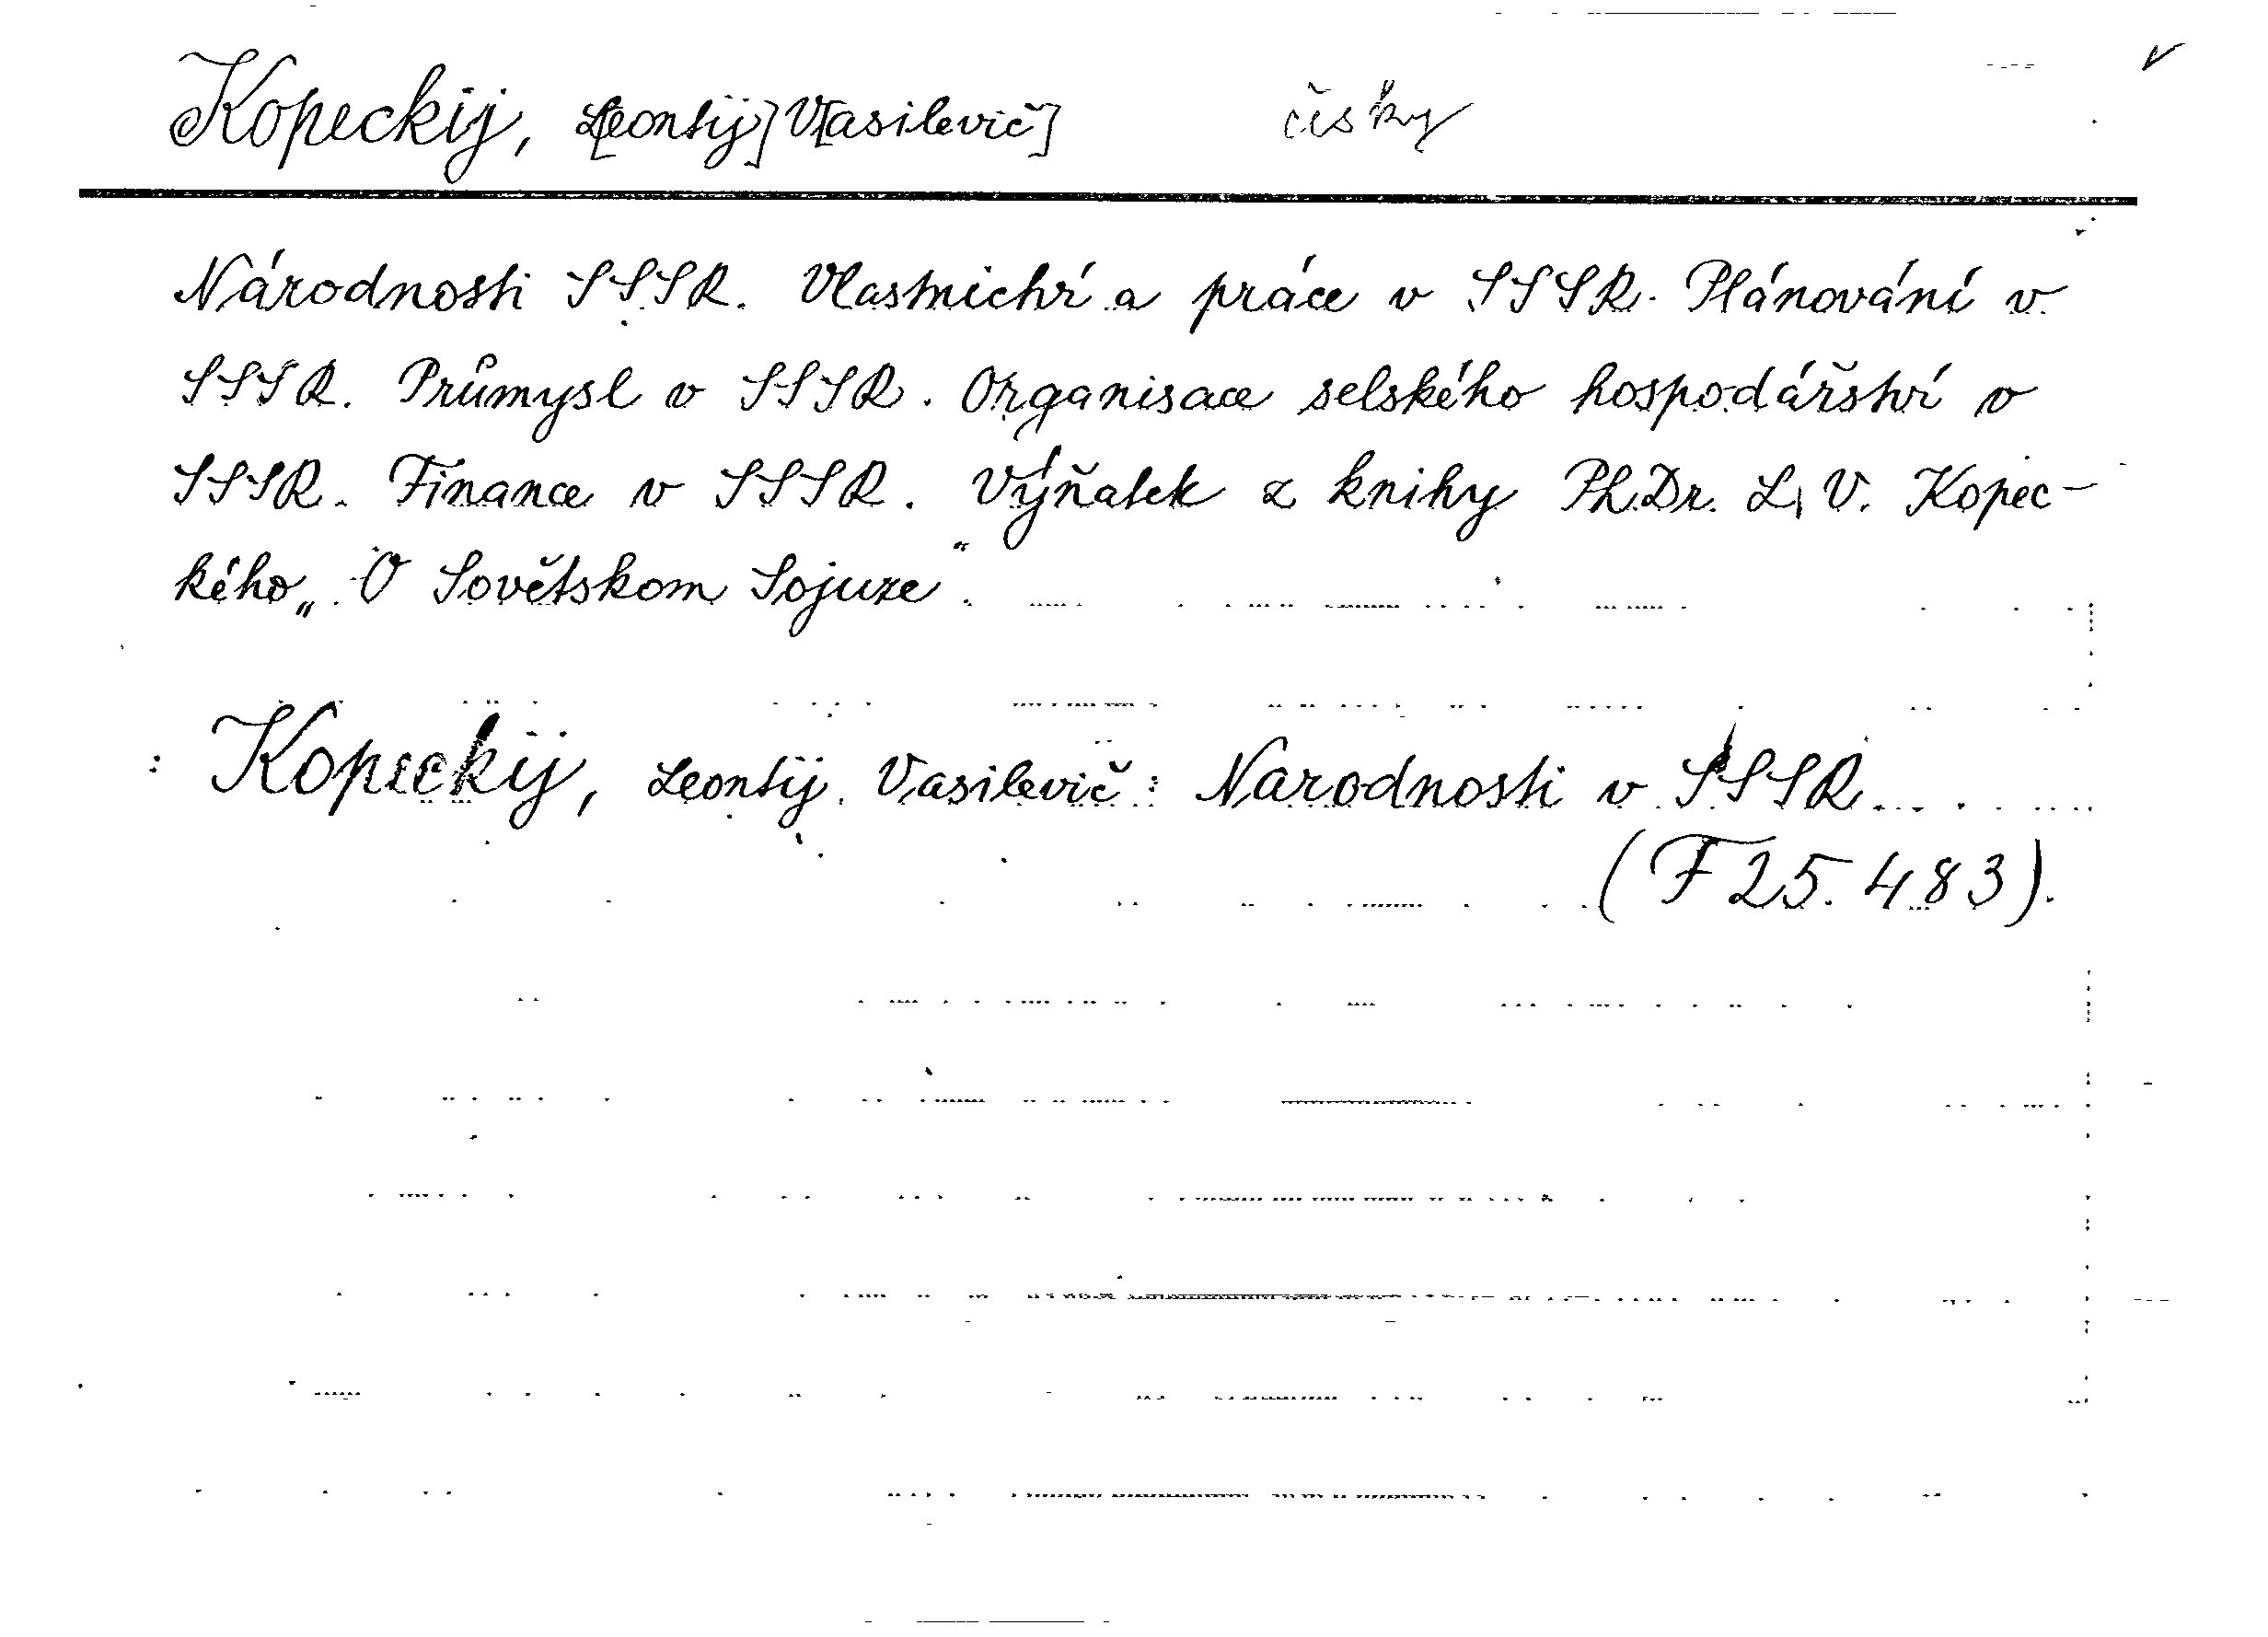 Kopeckij, L[eontij] V[asilevič] česky
Národnosti SSSR. Vlastnictví a práce v SSSR. Plánování v
SSSR. Průmysl v SSSR. Organisace selského hospodářství v
SSSR. Finance v SSSR. Výňatek z knihy Ph.Dr. L. V. Kopec-
kého „O Sovětskom Sojuze“.
: Kopeckij, Leontij Vasilevič: Narodnosti v SSSR...
(F 25.483).